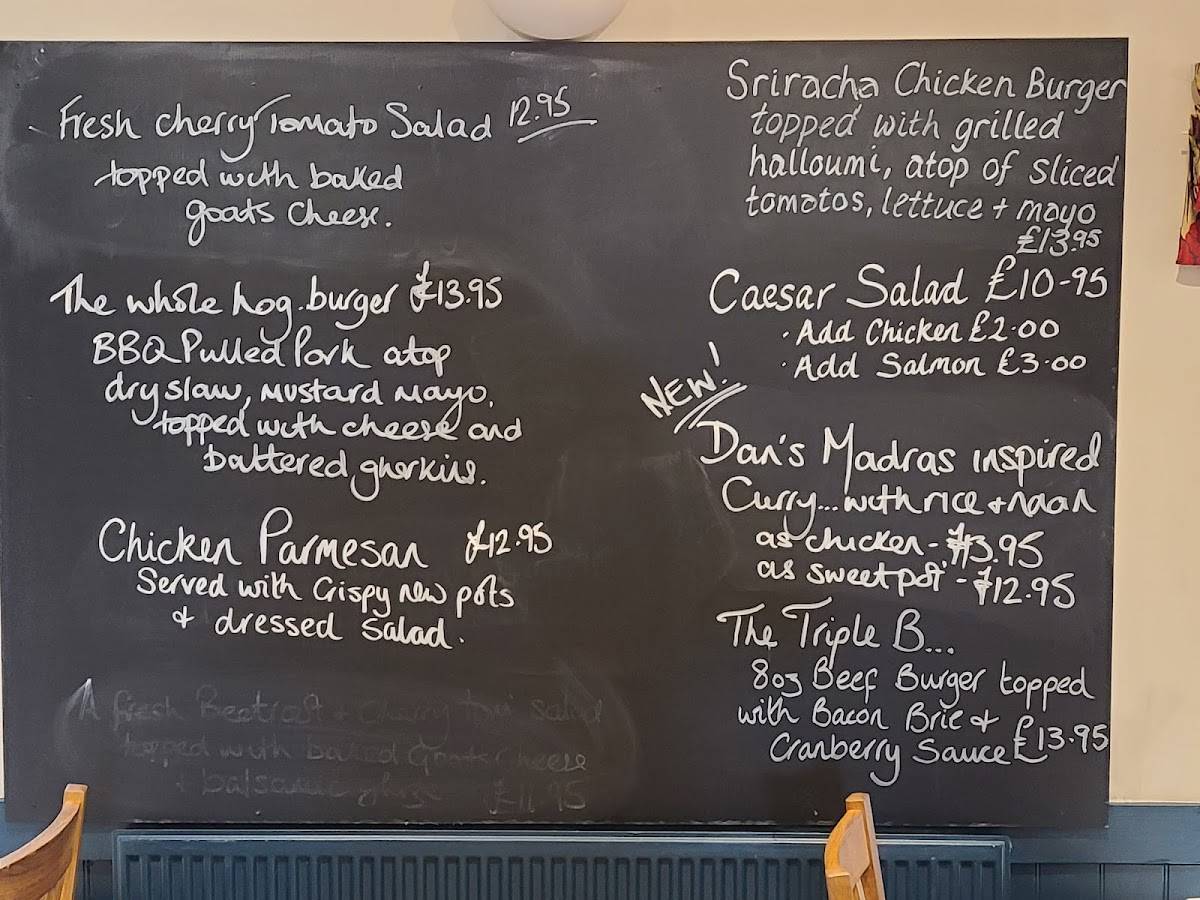 Fresh cherry Tomato Salad 12.95
topped with baked
goats cheese.
The whole hog burger £13.95
BBQ Pulled Pork atop
dry slaw, mustard mayo.
topped with cheese and
battered gherkins.
Chicken Parmesan £12.95
Served with Crispy new pots
& dressed salad.
A fresh Beetroot & Cherry Tom salad
topped with baked Goats Cheese
& balsamic glaze £11.95
Sriracha Chicken Burger
topped with grilled
halloumi, atop of sliced
tomatos, lettuce + mayo
£13.95
Caesar Salad £10-95
· Add Chicken £2.00
· Add Salmon £3.00
NEW!
Dan's Madras inspired
Curry... with rice + naan
as chicken - £13.95
as sweetpot - £12.95
The Triple B...
8oz Beef Burger topped
with Bacon Brie &
Cranberry Sauce £13.95